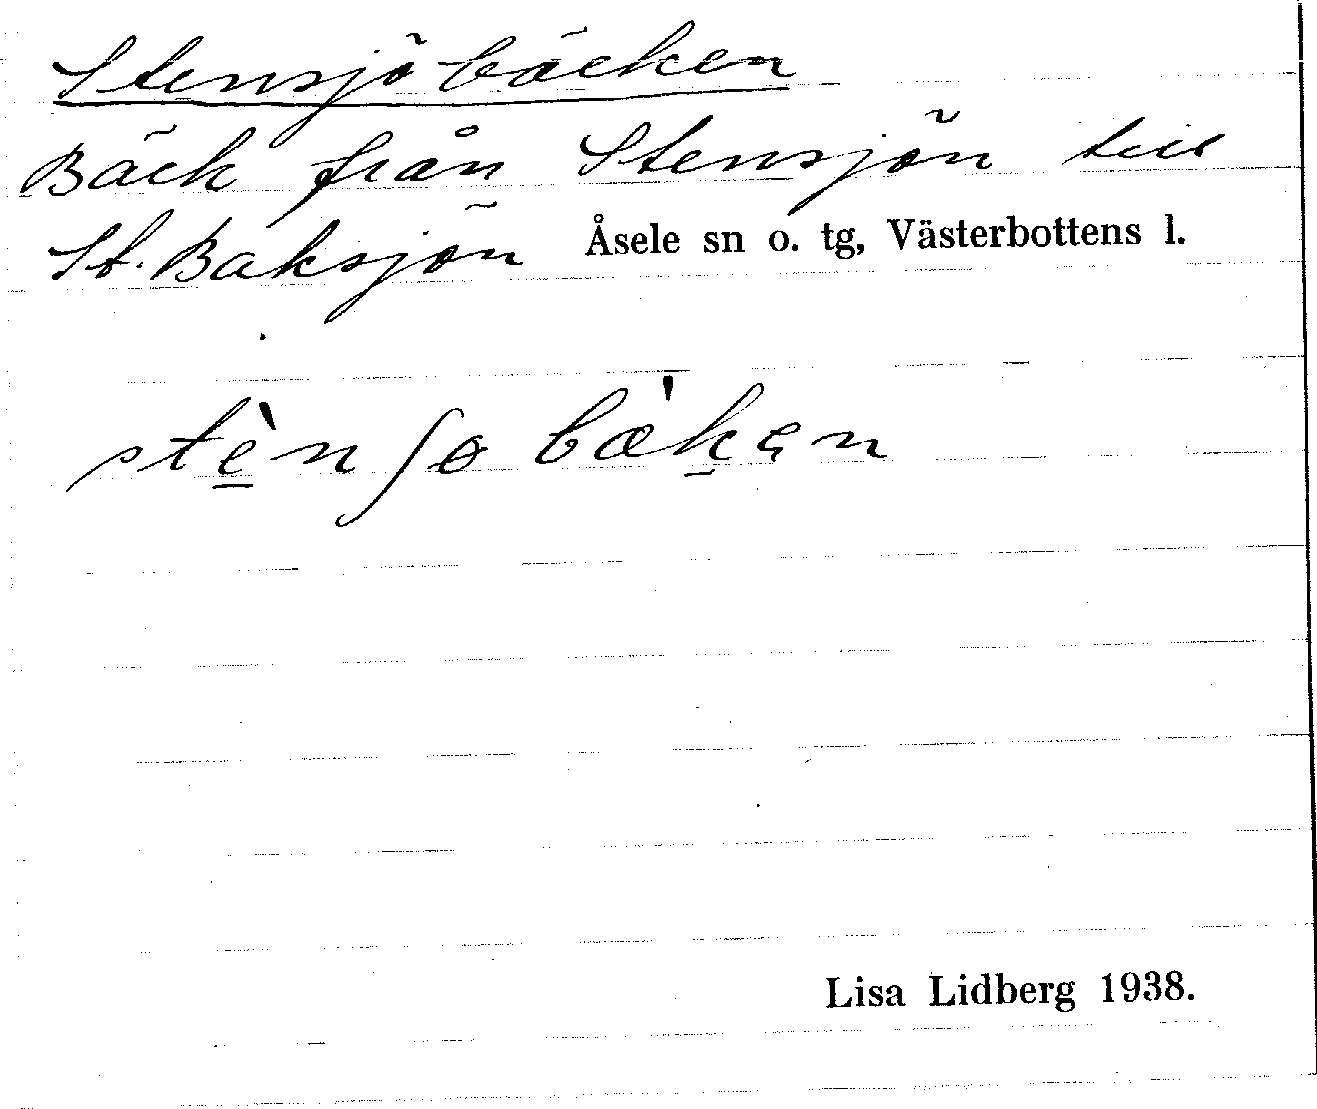 Stensjöbäcken
Bäck från Stensjön till
St. Baksjön Åsele sn o. tg, Västerbottens l.
stè̱nʃøbæ̀ḵən
Lisa Lidberg 1938.